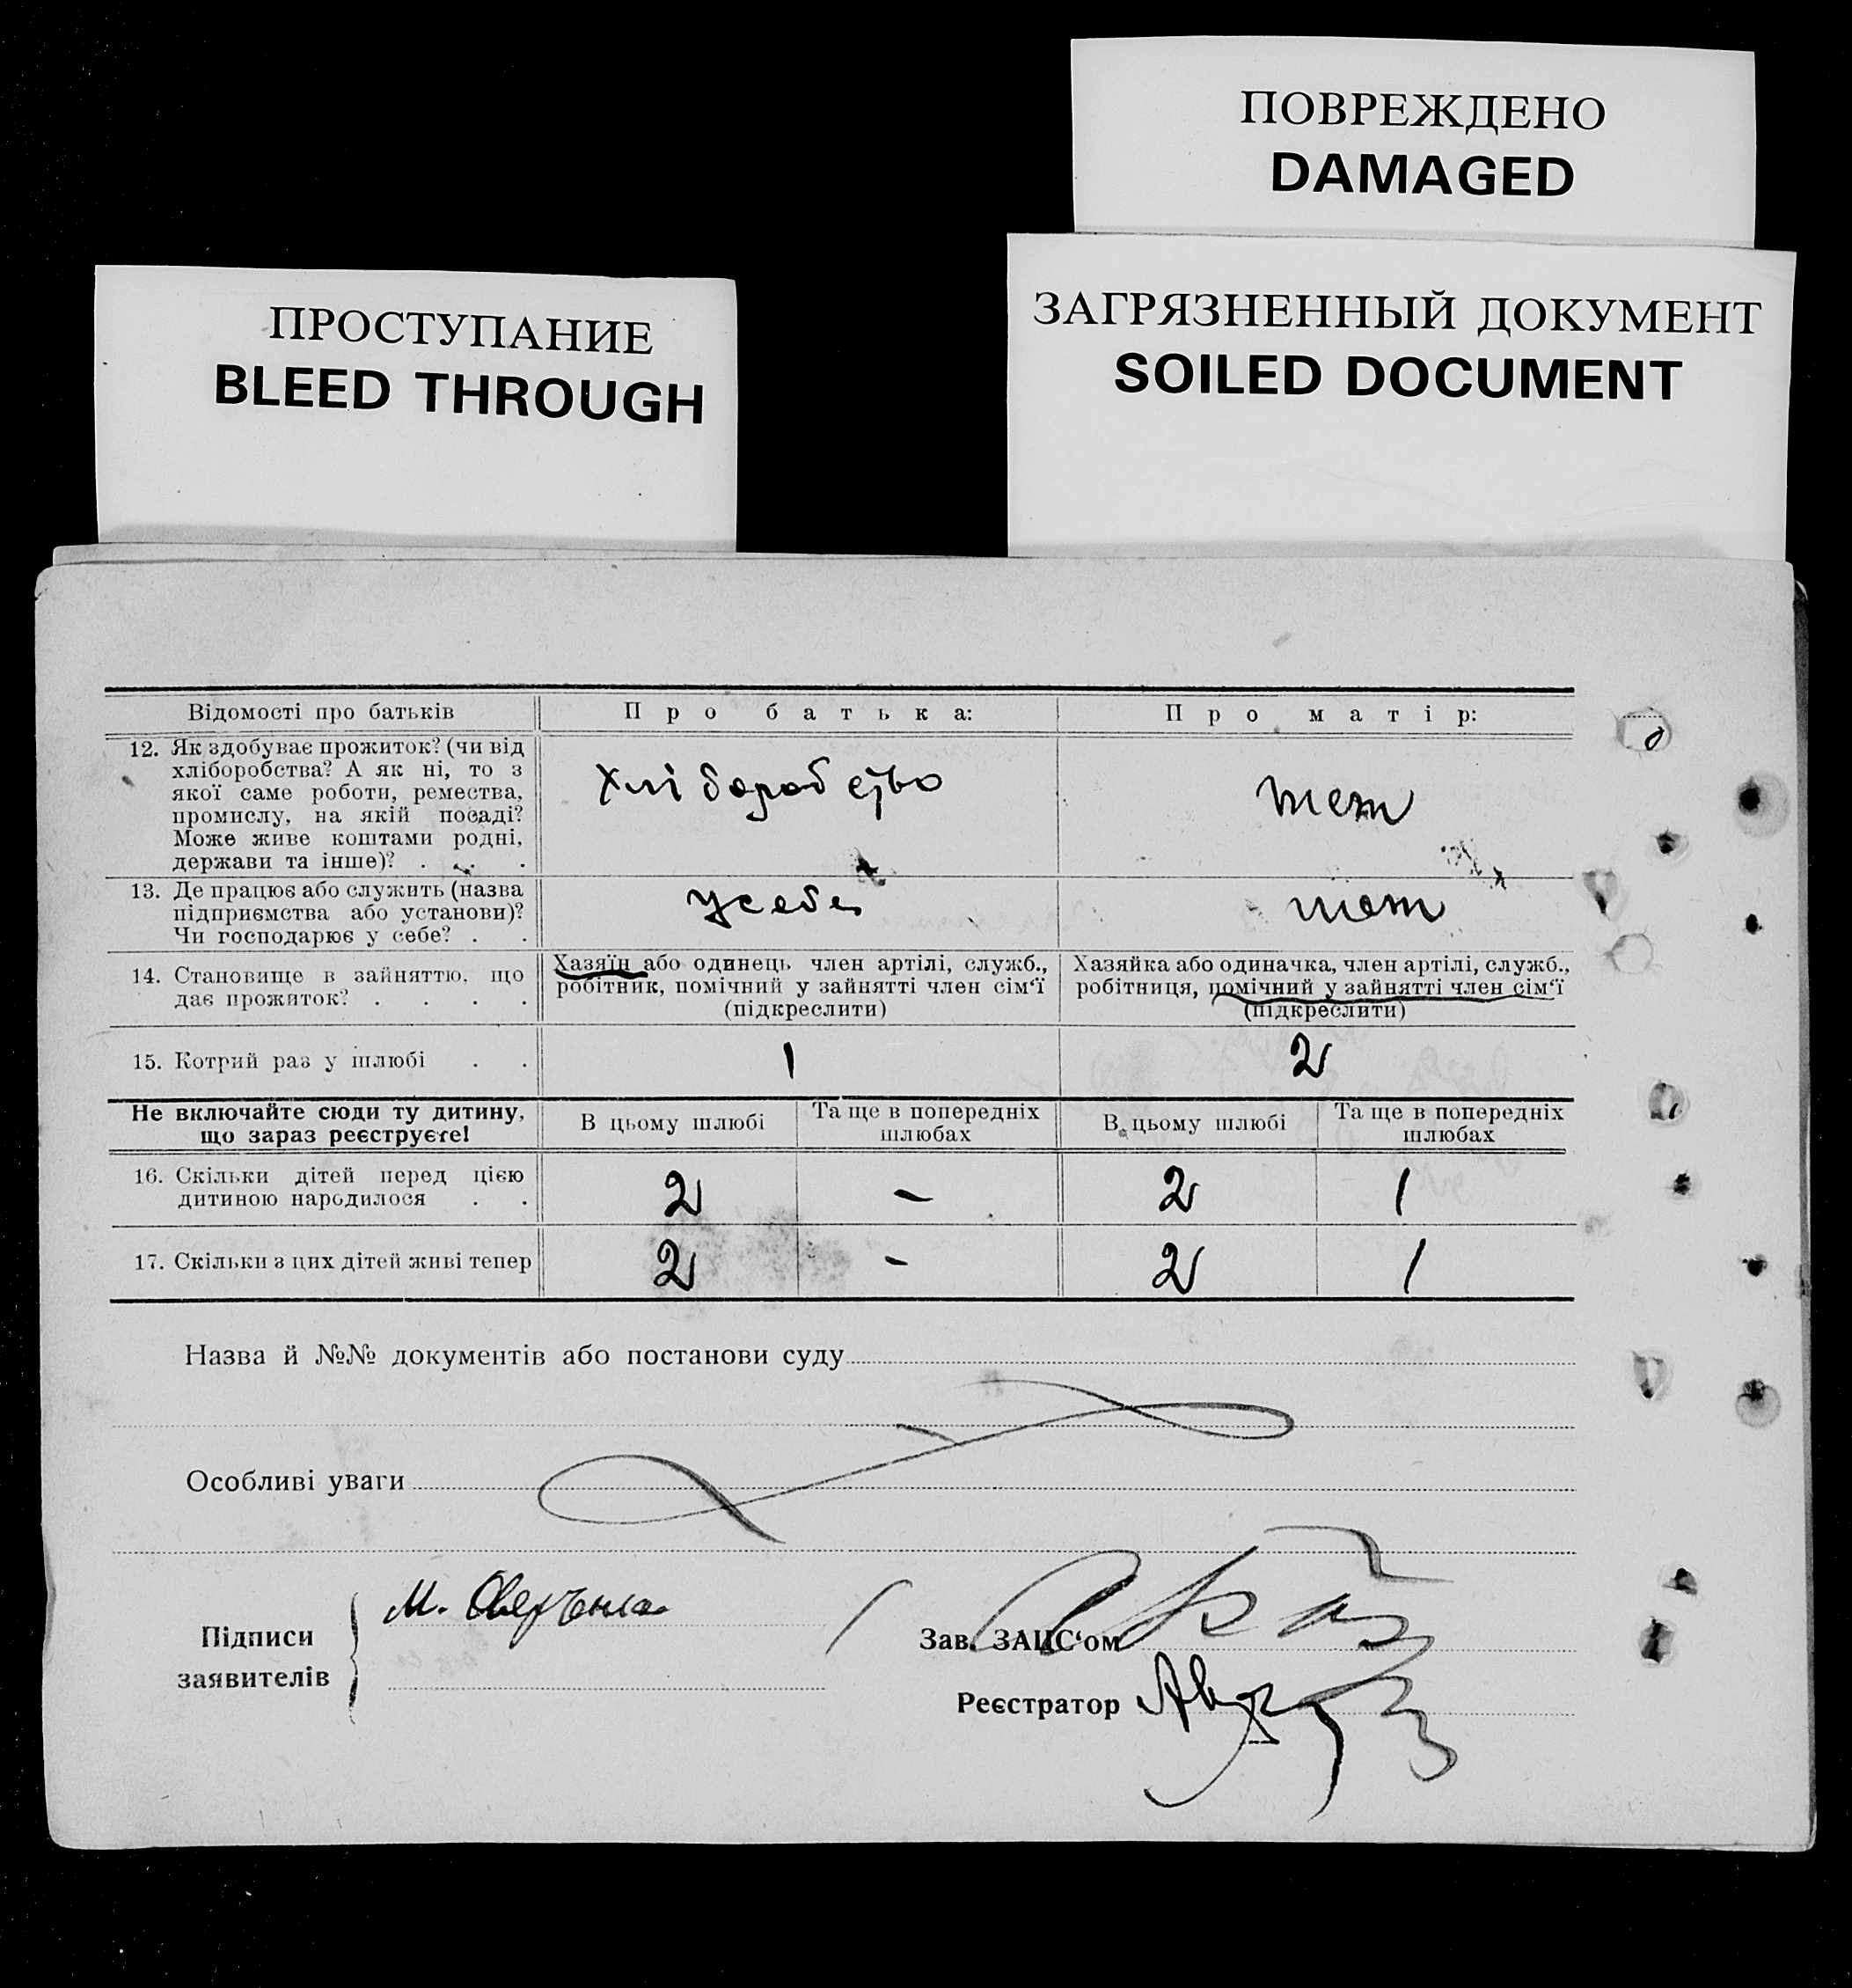 ПОВРЕЖДЕНО
DAMAGED
ПРОСТУПАНИЕ
BLEED THROUGH
ЗАГРЯЗНЕННЫЙ ДОКУМЕНТ
SOILED DOCUMENT
Відомості про батьків
Про батька:
Про матір:
12. Як здобуває прожиток? (чи від
хліборобства? А як ні, то з
якої саме роботи, ремества,
промислу, на якій посаді?
Може живе коштами родні,
держави та інше)? . . .
Хліборобство
теж
13. Де працює або служить (назва
підприємства або установи)?
Чи господарює у себе? . .
у себе
теж
14. Становище в зайняттю, що
дає прожиток? . . . .
Хазяїн або одинець член артілі, служб.,
робітник, помічний у зайнятті член сім‘ї
(підкреслити)
Хазяйка або одиначка, член артілі, служб.,
робітниця, помічний у зайнятті член сім‘ї
(підкреслити)
15. Котрий раз у шлюбі . .
1
2
Не включайте сюди ту дитину,
що зараз реєструєте!
В цьому шлюбі
Та ще в попередніх
шлюбах
В цьому шлюбі
Та ще в попередніх
шлюбах
16. Скільки дітей перед цією
дитиною народилося . .
2
-
2
1
17. Скільки з цих дітей живі тепер
2
-
2
1
Назва й №№ документів або постанови суду
Особливі уваги
Підписи
заявителів
М.
Зав. ЗАЦС‘ом
Реєстратор